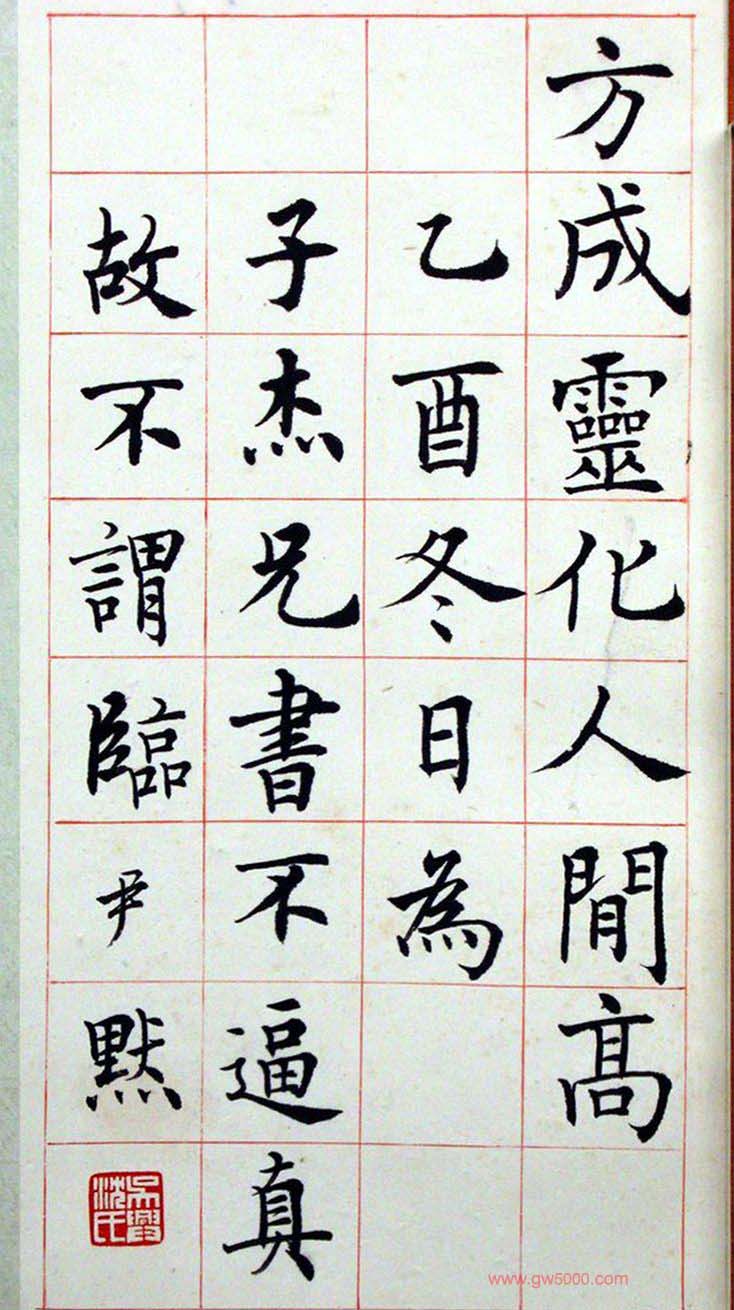 方成靈化人閒高
乙酉冬日為
子杰兄書不逼真
故不謂臨尹默
吳興沈氏
www.gw5000.com